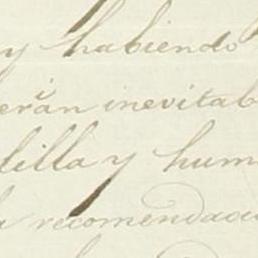 y habiendo
erán inevitab
dilla y hum
recomendaci